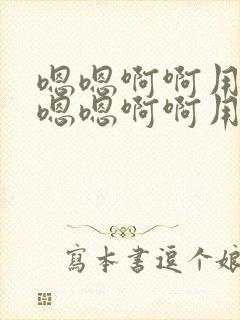 嗯嗯啊啊用
嗯嗯啊啊用
寫本書逗个娘